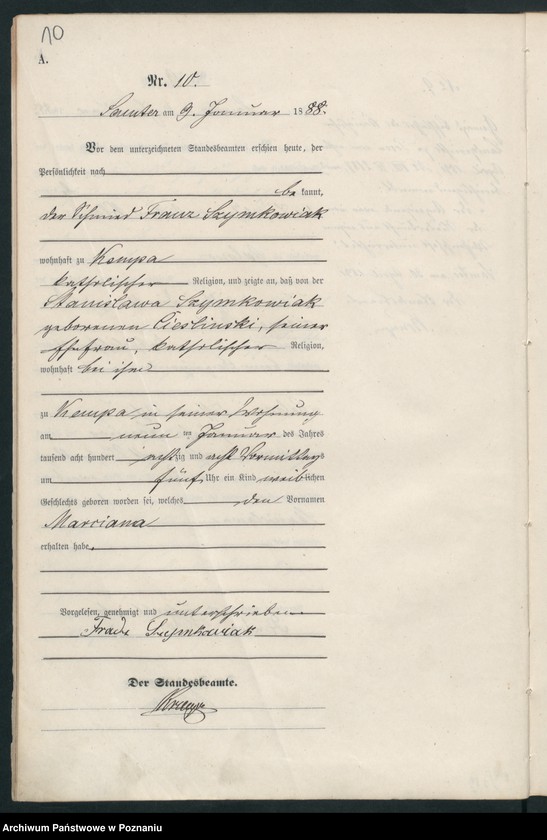 10
A.
Nr. 10.
Samter am 9. Januar 1888.
Vor dem unterzeichneten Standesbeamten erschien heute, der
Persönlichkeit nach
be kannt,
der Schmied Franz Szymkowiak
wohnhaft zu Kempa
katholischer Religion, und zeigte an, daß von der
Stanislawa Szymkowiak
geborenen Cieslinski, seiner
Ehefrau, katholischer Religion,
wohnhaft bei ihm
zu Kempa in seiner Wohnung
am neun ten Januar des Jahres
tausend acht hundert achtzig und acht Vormittags
um fünf Uhr ein Kind weiblichen
Geschlechts geboren worden sei, welches den Vornamen
Marciana
erhalten habe.
Vorgelesen, genehmigt und unterschrieben
Szymkowiak
Der Standesbeamte.
Archiwum Państwowe w Poznaniu